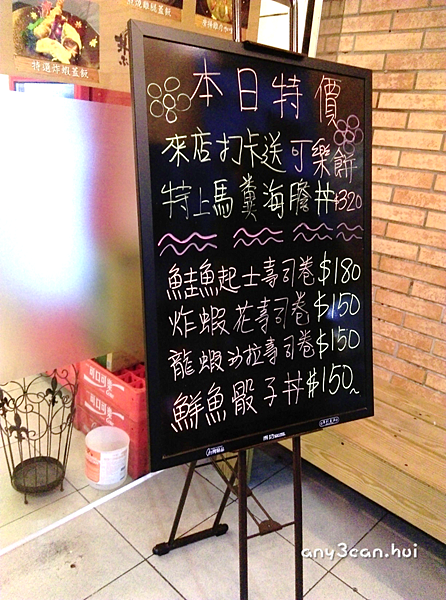 特選炸蝦蓋飯
本日特價
來店打卡送可樂餅
特上馬糞海膽丼$320
鮭魚起士壽司卷$180
炸蝦花壽司卷$150
龍蝦沙拉壽司卷$150
鮮魚骰子丼$150~
可口可樂
any3can.hui